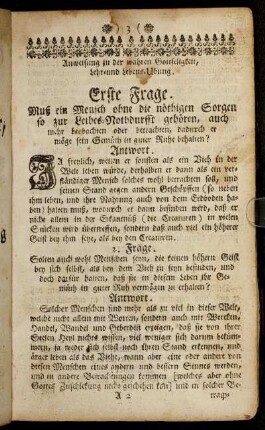 ( 3 )
Anweisung zu der wahren Gottseligkeit,
Lehr- und Lebens-Ubung.
Erste Frage.
Muß ein Mensch ohne die nöthigen Sorgen
so zur Leibes-Nothdurfft gehören, auch
mehr beobachten oder betrachten, dadurch er
möge sein Gemüth in guter Ruhe behalten?
Antwort.
JA freylich, wenn er sonsten als ein Vieh in der
Welt leben würde, derhalben er dann als ein ver-
ständiger Mensch solches wohl betrachten soll, und
seinen Stand gegen andern Geschöpffen (so neben
ihm leben, und ihre Nahrung auch von dem Erdboden ha-
ben) halten muß, wodurch er dann befinden wird, daß er
nicht allein in der Erkäntnüß (die Creaturen) in vielen
Stücken wird übertreffen, sondern daß auch ein höherer
Geist bey ihm seye, als bey den Creaturen.
2. Frage.
Solten auch wohl Menschen seyn, die keinen höhern Geist
bey sich selbst, als bey dem Vieh zu seyn befinden, und
doch darfür halten, daß sie in diesem Leben ihr Ge-
müth in guter Ruh vermögen zu erhalten?
Antwort.
Solcher Menschen sind mehr als zu viel in dieser Welt,
welche nicht allein mit Worten, sondern auch mit Wercken,
Handel, Wandel und Geberden erzeigen, daß sie von ihrer
Seelen Heyl nichts wissen, viel weniger sich darum beküm-
mern, ja weder sich selbst noch ihren Stand erkennen, und
ärger leben als das Vieh, wann aber eine oder andere von
diesen Menschen eines andern und bessern Sinnes werden,
und in andere Betrachtungen kommen (welches aber ohne
Gottes Zuschickung nicht geschehen kan) und er solcher Be-
A 2
trach-